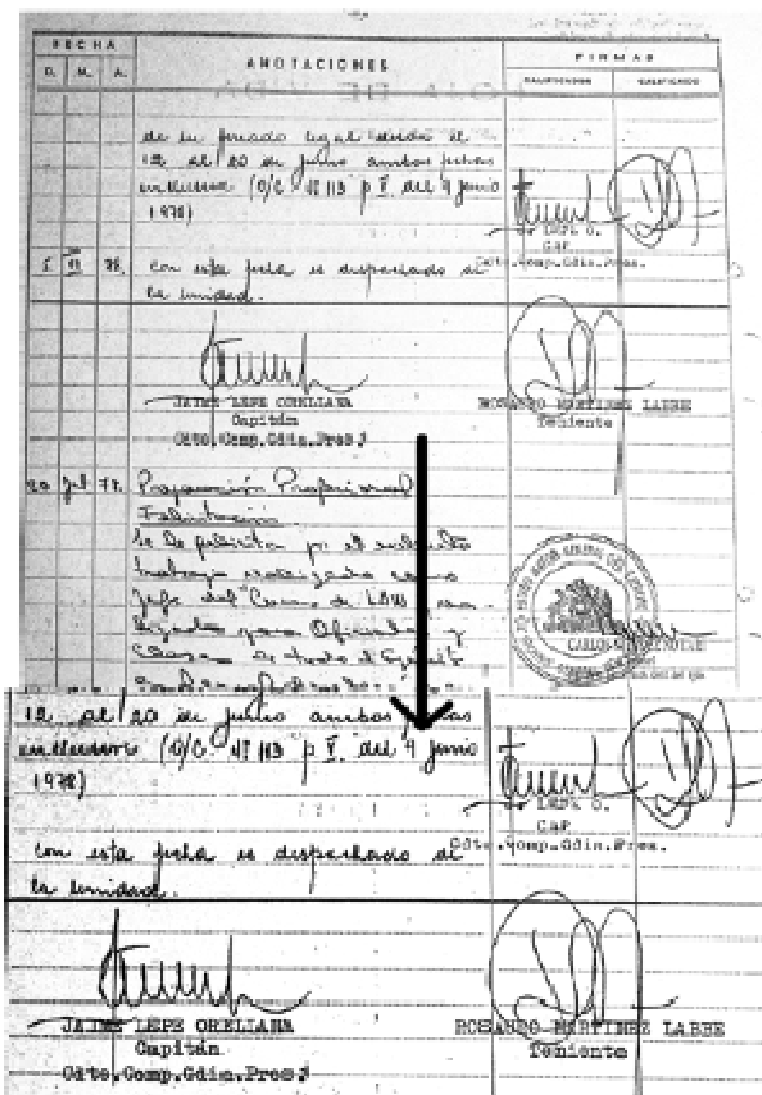 FECHA
D. M. A.
ANOTACIONES
FIRMAS
CALIFICADOR CALIFICADO
de su feriado legal desde el
12 al 20 de junio ambas fechas
inclusive (O/C Nº 113 p V. del 9 junio
1978)
LEPE O.
CAP
Cdte.Comp.Gdia.Pres.
78. Con esta fecha es despachado a
la unidad.
JAIME LEPE ORELLANA
Capitán
Cdte.Comp.Gdia.Pres.
ROSAURO MARTINEZ LABBE
Teniente
20 Jul 78. Preparación Profesional
Felicitación
Se le felicita por el
trabajo realizado como
Jefe del Curso de
para Oficiales y
Clases de todo el Ejército
CARLOS
12 al 20 de junio ambas
inclusive (O/C Nº 113 p V. del 9 junio
1978)
LEPE O.
CAP
Cdte.Comp.Gdia.Pres.
Con esta fecha es despachado a
la unidad.
JAIME LEPE ORELLANA
Capitán
Cdte.Comp.Gdia.Pres.
ROSAURO MARTINEZ LABBE
Teniente